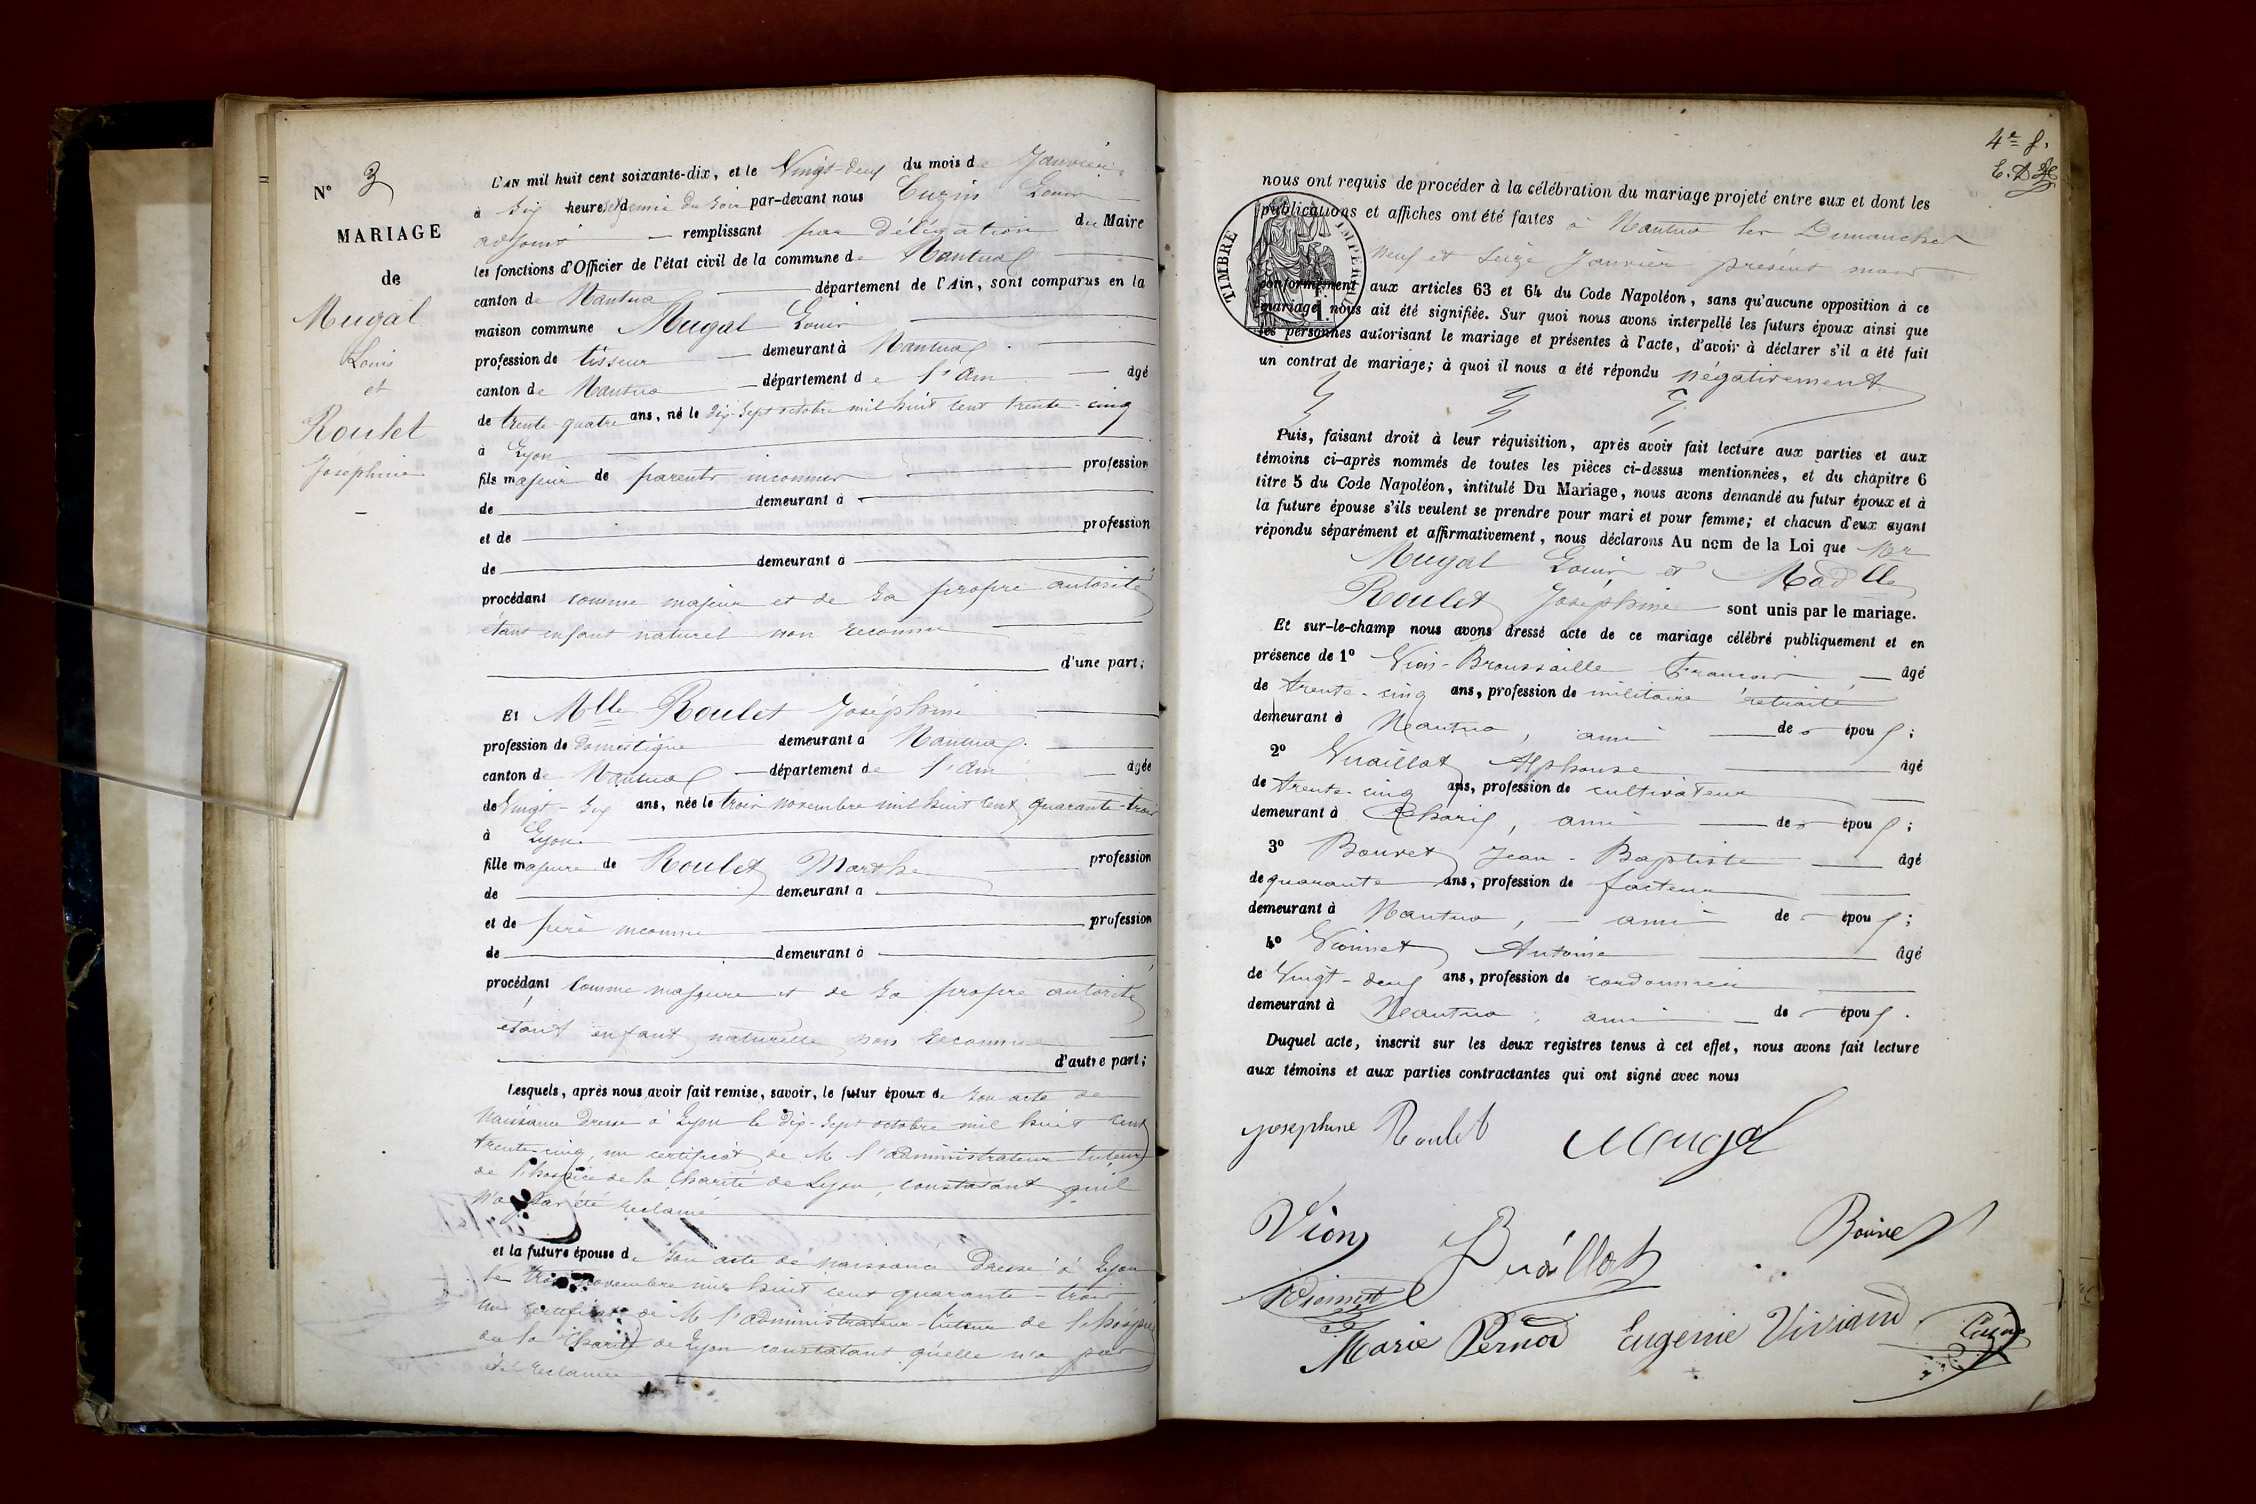 N° 3
MARIAGE
de
Mugat
Louis
et
Roulet
Joséphine
L'AN mil huit cent soixante-dix, et le Vingt-deux du mois de Janvier
à six heures et demie du soir par-devant nous Cuzin Louis
adjoint remplissant par délégation du Maire
les fonctions d'Officier de l'état civil de la commune de Nantua
canton de Nantua département de l'Ain, sont comparus en la
maison commune Mugat Louis
profession de tisseur demeurant à Nantua
canton de Nantua département de l'Ain âgé
de trente-quatre ans, né le dix-sept octobre mil huit cent trente-cinq
à Lyon
fils majeur de parents inconnus profession
de demeurant à
et de profession
de demeurant à
procédant comme majeur et de sa propre autorité
étant enfant naturel non reconnu
d'une part;
Et Mlle Roulet Joséphine
profession de domestique demeurant à Nantua
canton de Nantua département de l'Ain âgée
de Vingt-six ans, née le trois novembre mil huit cent quarante-trois
à Lyon
fille majeure de Roulet Marthe profession
de demeurant à
et de père inconnu profession
de demeurant à
procédant comme majeure et de sa propre autorité
étant enfant naturelle non reconnue
d'autre part;
Lesquels, après nous avoir fait remise, savoir, le futur époux de son acte de
naissance dressé à Lyon le dix-sept octobre mil huit cent
trente-cinq, un certificat de M l'administrateur tuteur
de l'hospice de la Charité de Lyon, constatant qu'il
n'a pas été réclamé
et la future épouse de son acte de naissance dressé à Lyon
le trois novembre mil huit cent quarante-trois
un certificat de M l'administrateur-tuteur de l'hospice
de la Charité de Lyon constatant qu'elle n'a pas
été réclamée
4e f.
nous ont requis de procéder à la célébration du mariage projeté entre eux et dont les
publications et affiches ont été faites à Nantua les Dimanches
neuf et seize Janvier présent mois
TIMBRE IMPERIAL
1 F.
conformément aux articles 63 et 64 du Code Napoléon, sans qu'aucune opposition à ce
mariage nous ait été signifiée. Sur quoi nous avons interpellé les futurs époux ainsi que
les personnes autorisant le mariage et présentes à l'acte, d'avoir à déclarer s'il a été fait
un contrat de mariage; à quoi il nous a été répondu négativement
Puis, faisant droit à leur réquisition, après avoir fait lecture aux parties et aux
témoins ci-après nommés de toutes les pièces ci-dessus mentionnées, et du chapitre 6
titre 5 du Code Napoléon, intitulé Du Mariage, nous avons demandé au futur époux et à
la future épouse s'ils veulent se prendre pour mari et pour femme; et chacun d'eux ayant
répondu séparément et affirmativement, nous déclarons Au nom de la Loi que Mr
Mugat Louis et Madlle
Roulet Joséphine sont unis par le mariage.
Et sur-le-champ nous avons dressé acte de ce mariage célébré publiquement et en
présence de 1° Vion-Broussaille François âgé
de trente-cinq ans, profession de militaire retraité
demeurant à Nantua, ami de époux;
2° Vuaillat Alphonse âgé
de trente-cinq ans, profession de cultivateur
demeurant à Charix, ami de époux;
3° Bouvet Jean-Baptiste âgé
de quarante ans, profession de facteur
demeurant à Nantua, ami de époux;
4° Vionnet Antoine âgé
de Vingt-deux ans, profession de cordonnier
demeurant à Nantua, ami de époux.
Duquel acte, inscrit sur les deux registres tenus à cet effet, nous avons fait lecture
aux témoins et aux parties contractantes qui ont signé avec nous
josephine Roulet Mugat
Vion Vuaillat Bouvet
Vionnet
Marie Pernod Eugenie Viviand Cuzin